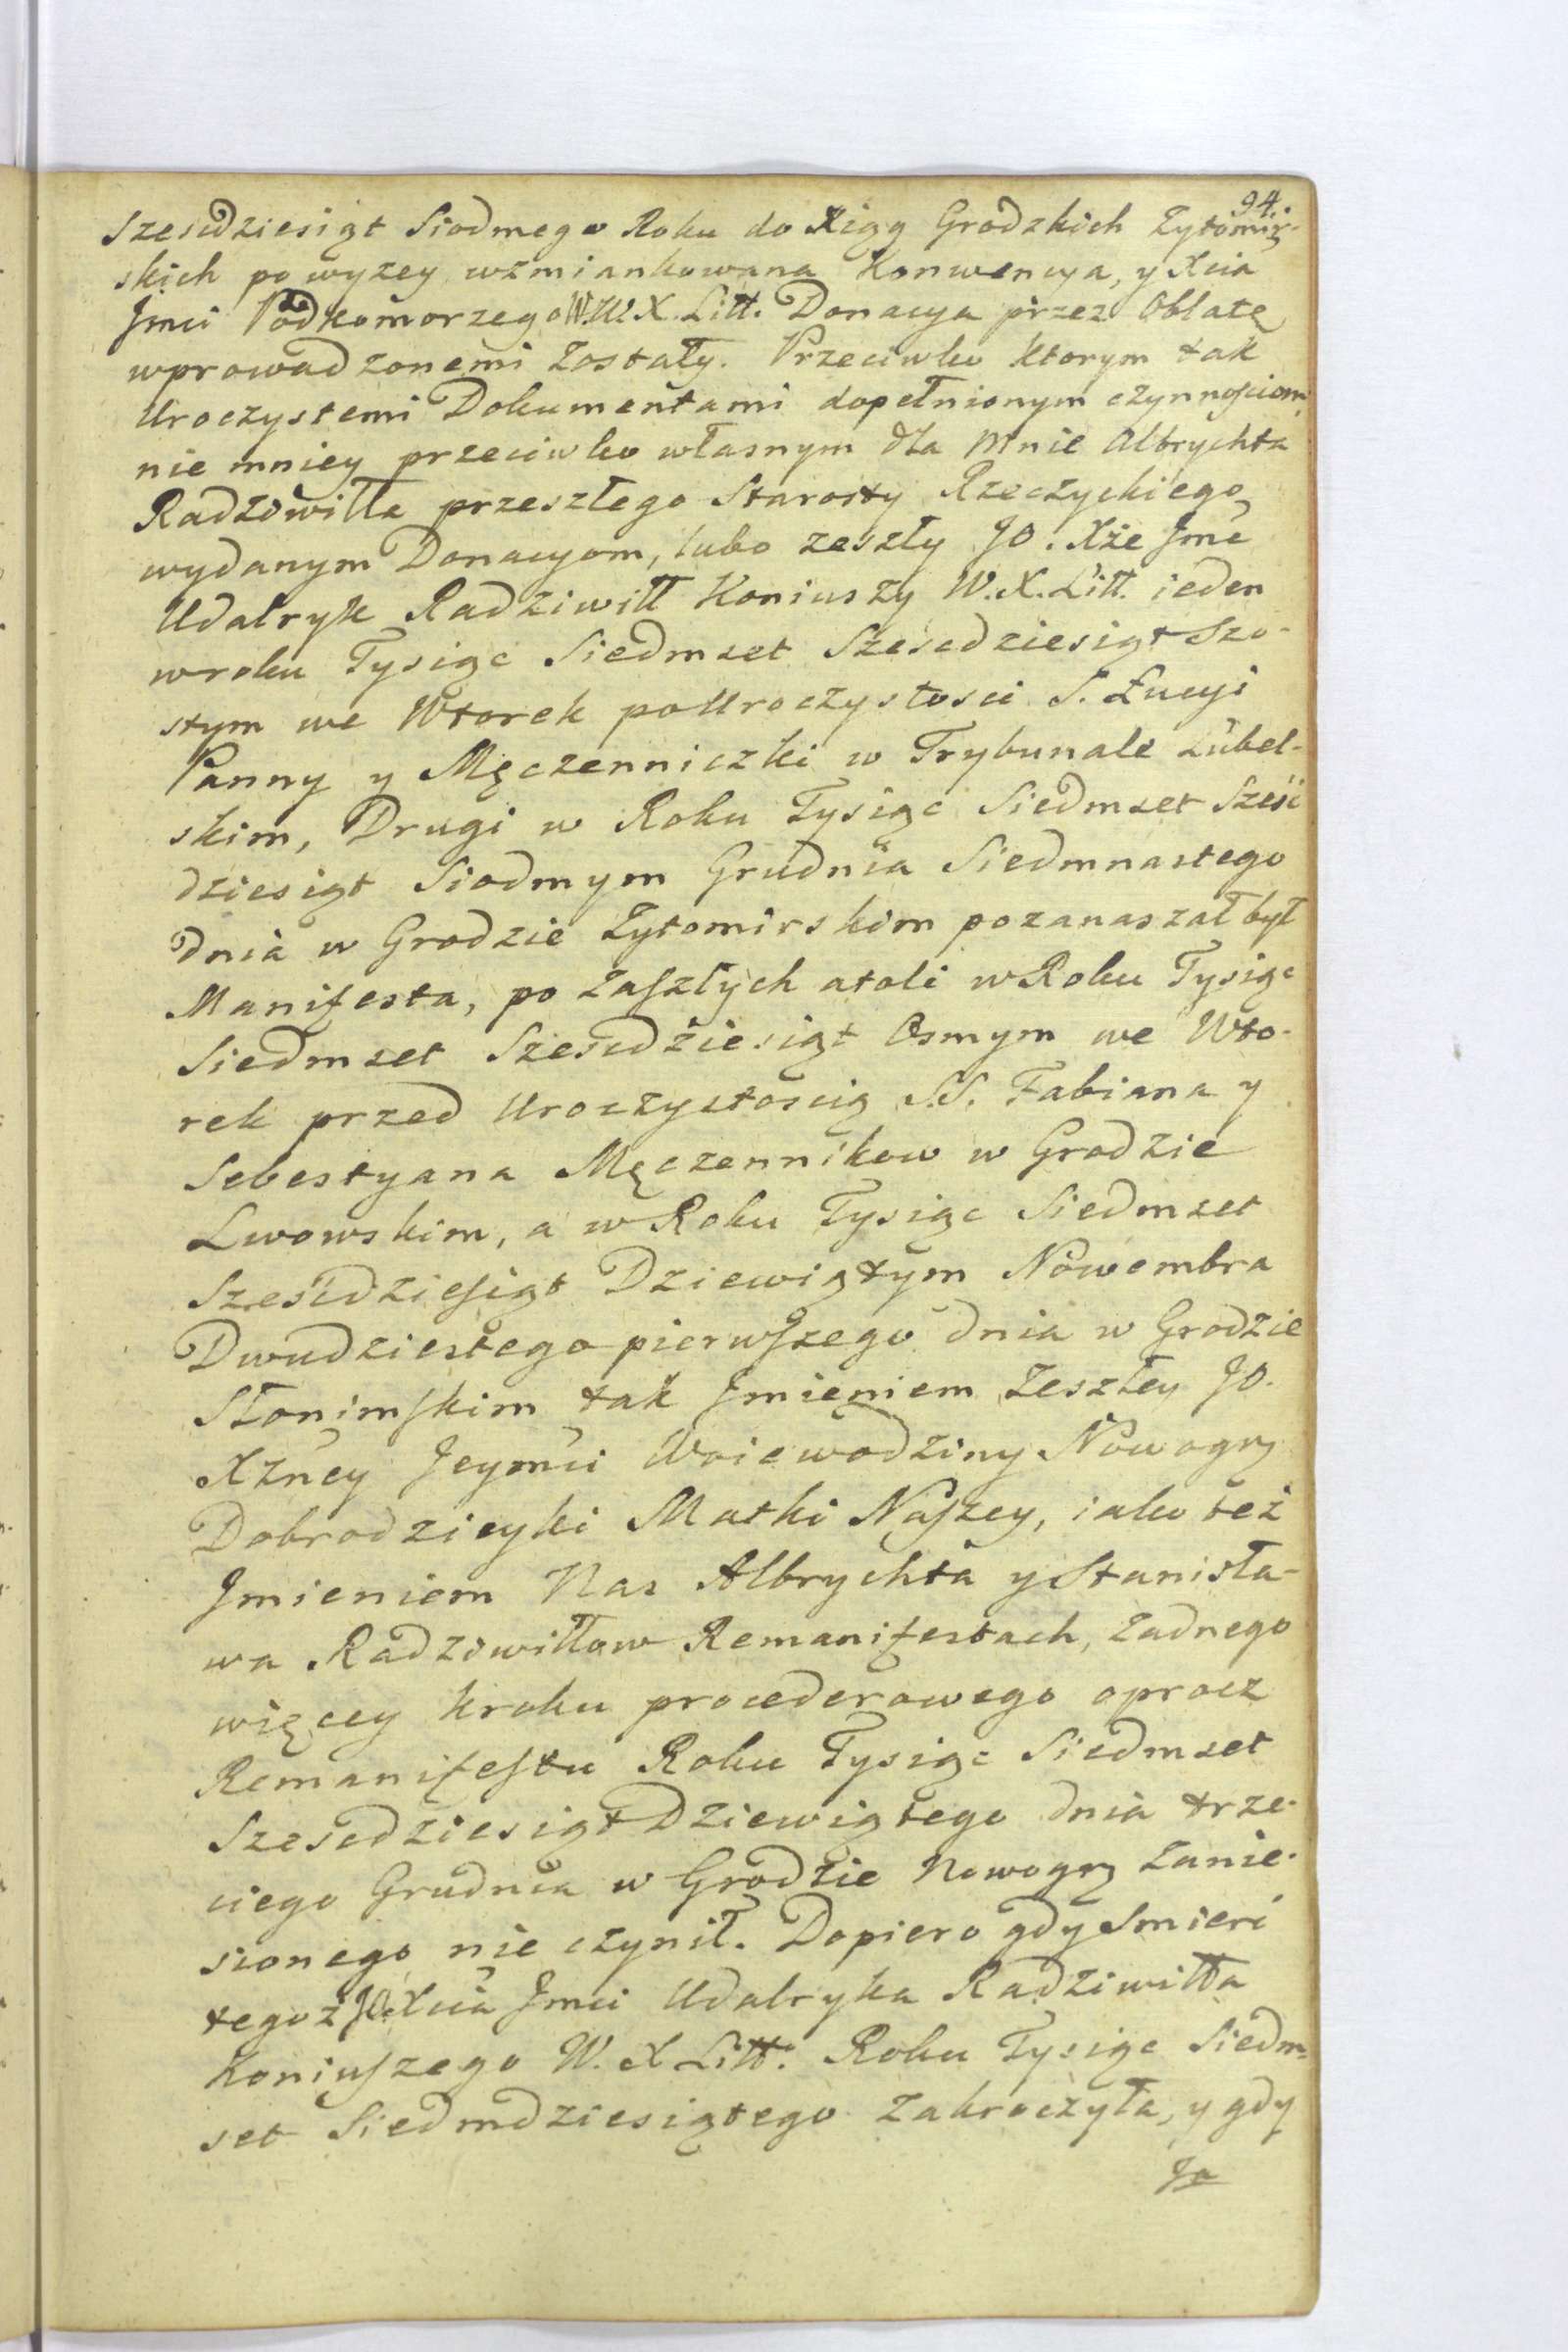 94.
Szescdziesiąt Siodmego Roku do Xiąg Grodzkich Zytomir-
skich powyzey wzmiankowana Konwencya, y Xcia
Jmci Podkomorzego W. X. Litt. Donacya przez Oblatę
wprowadzonemi zostały. Przeciwko ktorym tak
Uroczystemi Dokumentami dopełnionym czynnosciom,
nie mniey przeciwko własnym dla Mnie Albrychta
Radziwiłła przeszłego Starosty Rzeczyckiego
wydanym Donacyom, lubo zeszły JO. Xże Jmć
Udalryk Radziwiłł Koniuszy W. X. Litt. ieden
w roku Tysiąc Siedmset Szescdziesiąt Szo-
stym we Wtorek po Uroczystosci S. Łucyi
Panny y Męczenniczki w Trybunale Lubel-
skim, Drugi w Roku Tysiąc Siedmset Szesć
dziesiąt Siodmym Grudnia Siedmnastego
dnia w Grodzie Zytomirskim pozanaszał był
Manifesta, po zaszłych atoli w Roku Tysiąc
Siedmset Szescdziesiąt Osmym we Wto-
rek przed Uroczystoscią S.S. Fabiana y
Sebestyana Męczennikow w Grodzie
Lwowskim, a w Roku Tysiąc Siedmset
Szesćdziesiąt Dziewiątym Nowembra
Dwudziestego pierwszego dnia w Grodzie
Słonimskim tak Jmieniem Zeszłey JO.
Xżney Jeymći Woiewodziny Nowogrz
Dobrodzieyki Matki Naszey, iako też
Jmieniem Nas Albrychta y Stanisła-
wa Radziwiłłow Remanifestach, żadnego
więcey kroku procederowego oprocz
Remanifestu Roku Tysiąc Siedmset
Szescdziesiąt Dziewiątego dnia trze-
ciego Grudnia w Grodzie Nowogrz zanie-
sionego nie czynił. Dopiero gdy Smierć
tegoz JO. Xcia Jmci Udalryka Radziwiłła
Koniuszego W. X Litt. Roku Tysiąc Siedm-
set Siedmdziesiątego zakroczyła, y gdy
Ja